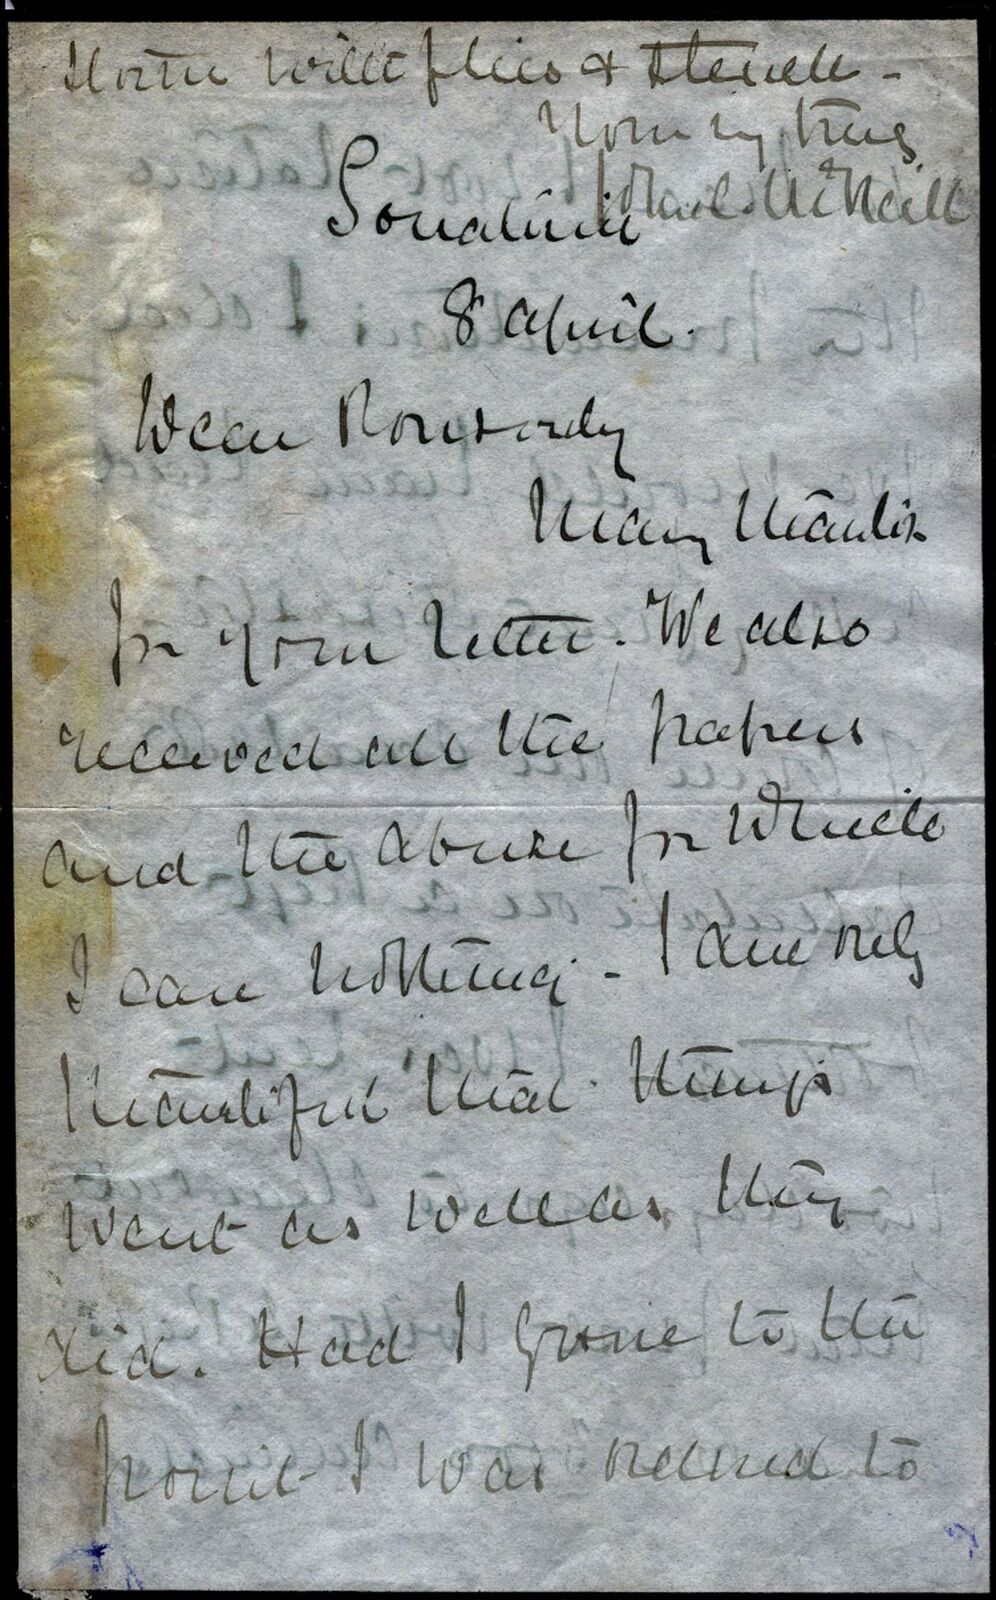 with flies & stench -
Yours very truly
John C. McNeill
Souakim
8 April.
Dear Ponsonby
Many thanks
for your letter. We also
received all the papers
and the abuse for which
I care nothing - I am only
thankful that things
went as well as they
did. Had I gone to the
point I was ordered to